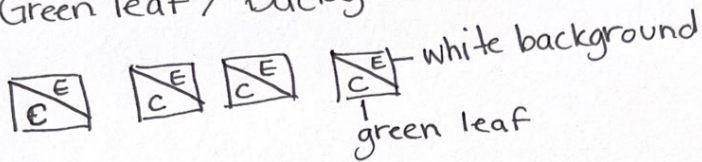 Green leaf /
E E E E white background
C C C C
green leaf